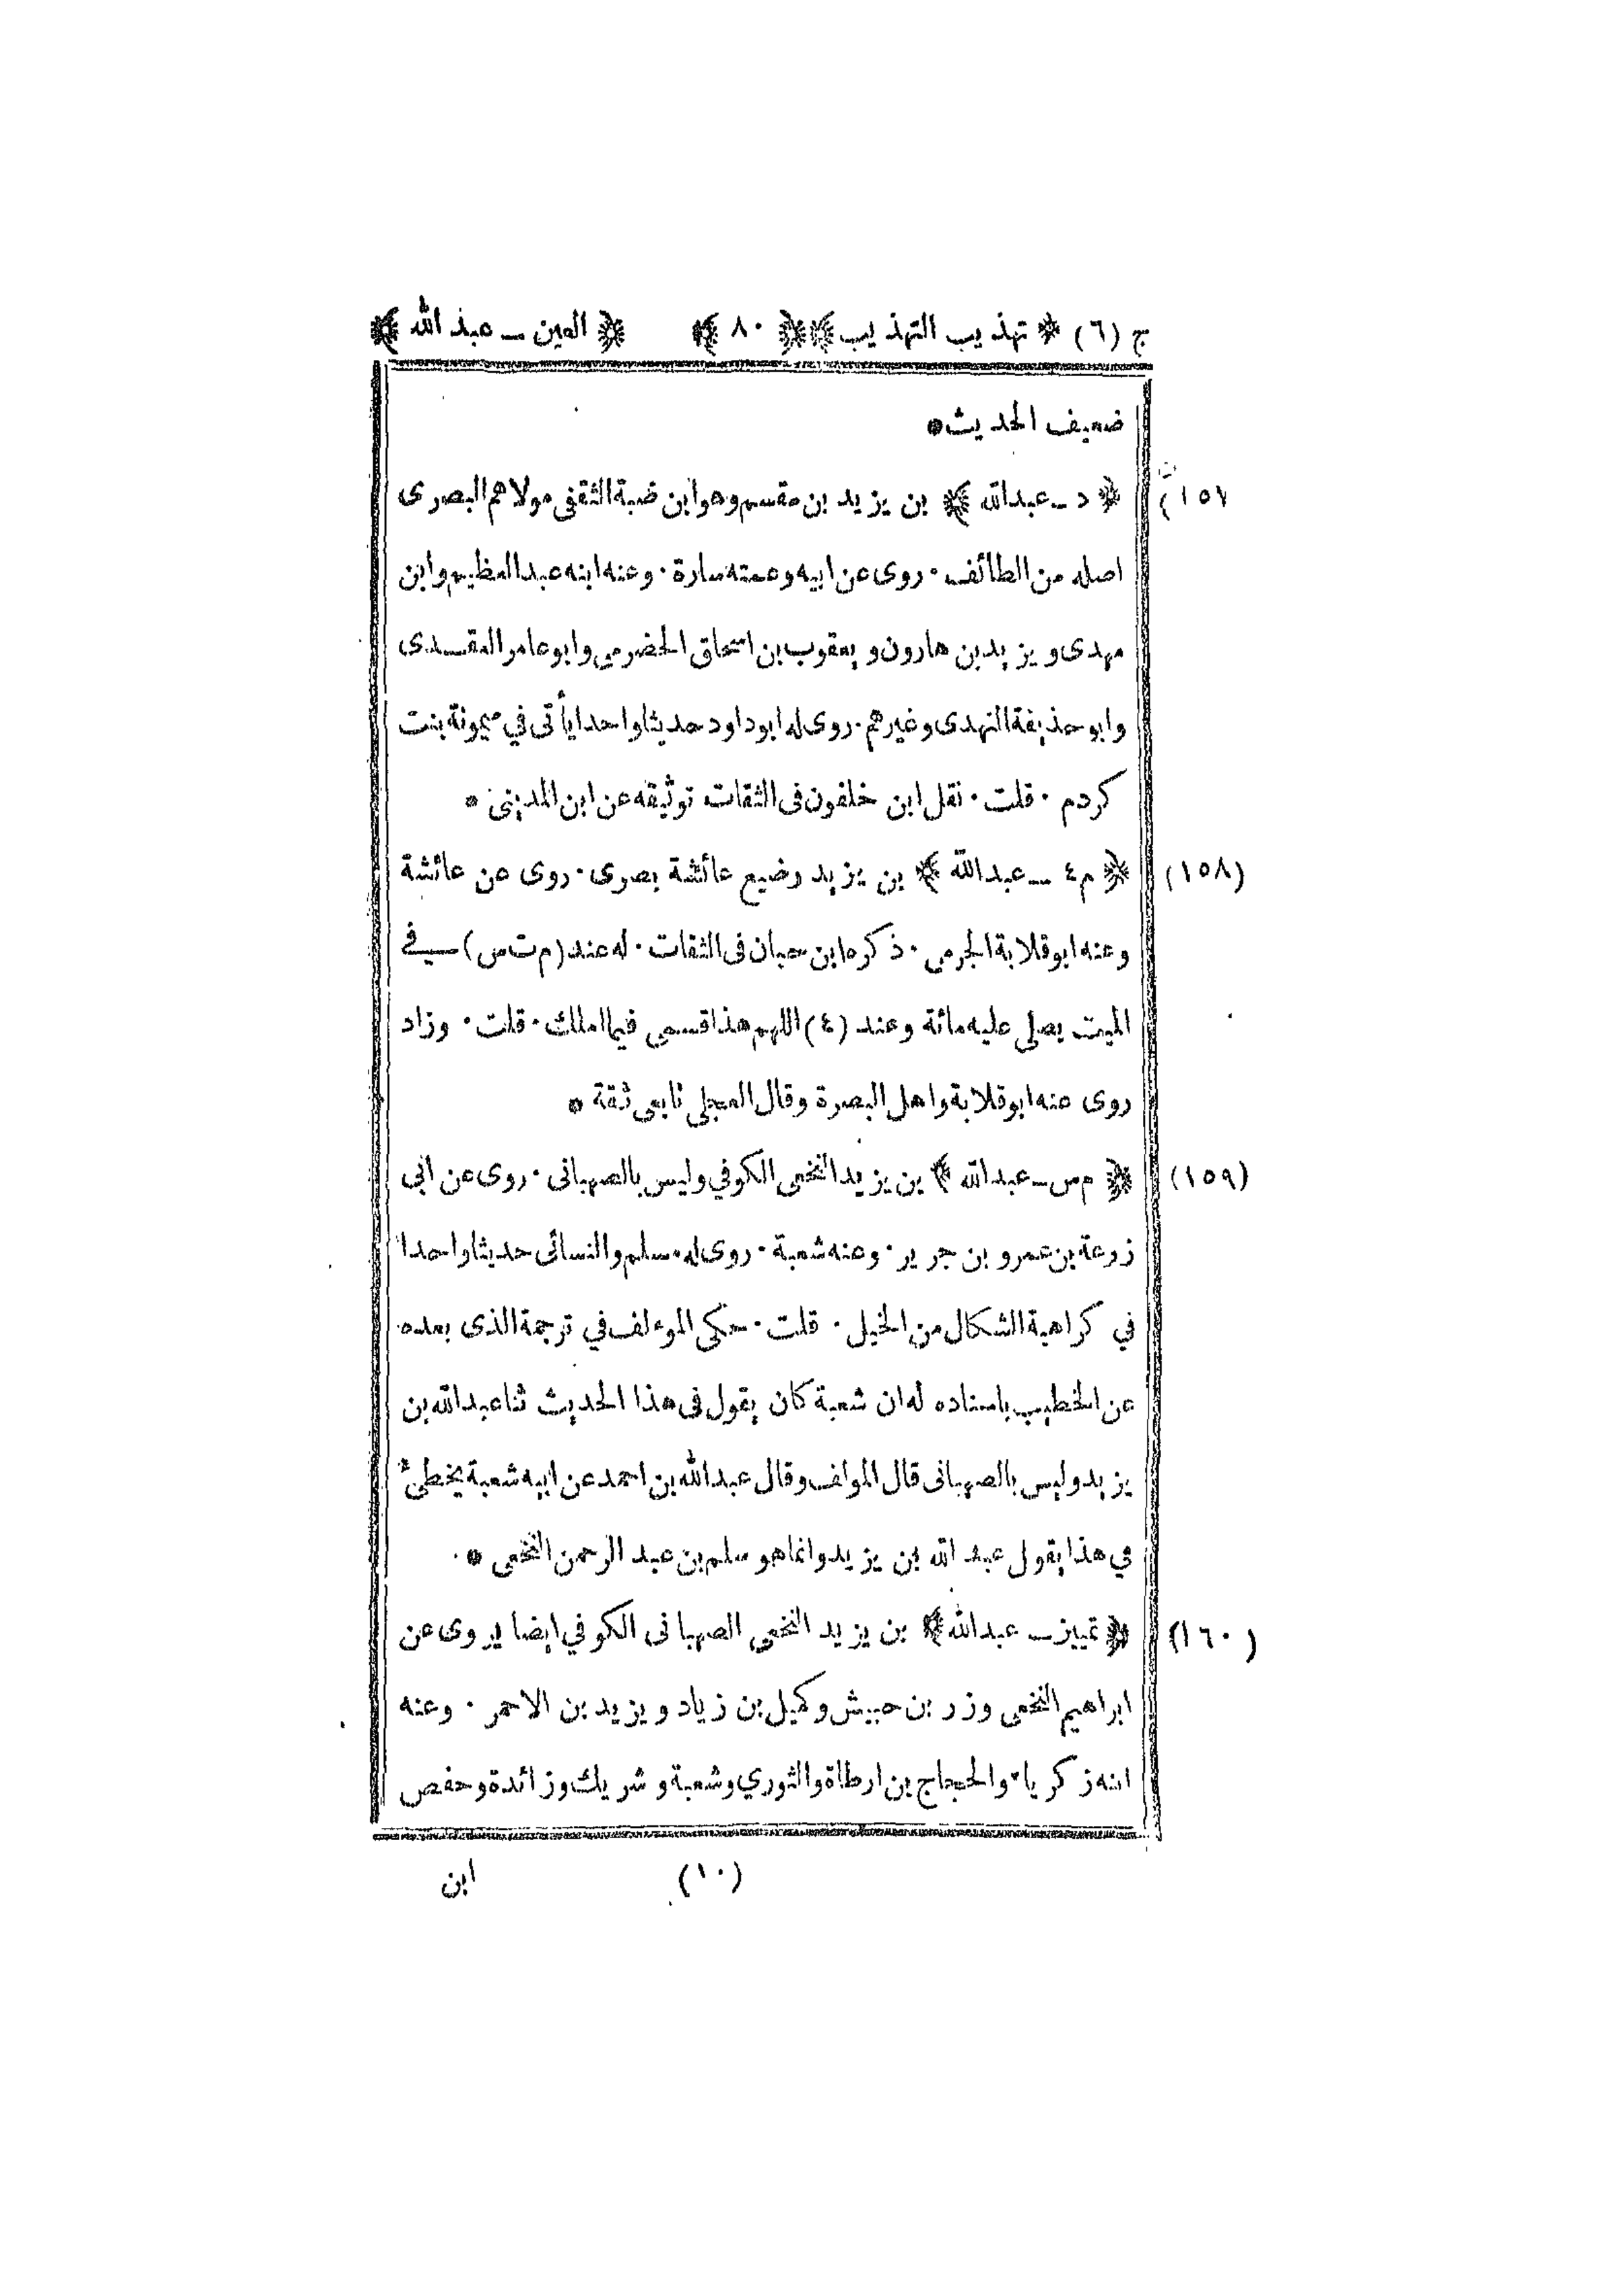 ج (٦) ﴿ تهذيب التهذيب ﴾ ﴿ ٨٠ ﴾ ﴿ العين ـ عبد الله ﴾
ضعيف الحديث *
(١٥٧) ﴿ د ـ عبدالله ﴾ بن يزيد بن مقسم وهو ابن ضبة الثقفى مولاهم البصرى
اصله من الطائف · روى عن ابيه وعمته سارة · وعنه ابنه عبد العظيم وابن
مهدى ويزيد بن هارون ويعقوب بن اسحاق الحضرمي وابوعامر العقدى
وابو حذيفة النهدى وغيرهم · روى له ابو داود حديثا واحدا يأتى في ميمونة بنت
كردم · قلت · نقل ابن خلفون فى الثقات توثيقه عن ابن المدينى *
(١٥٨) ﴿ م ٤ ـ عبدالله ﴾ بن يزيد رضيع عائشة بصرى · روى عن عائشة
وعنه ابو قلابة الجرمي · ذكره ابن حبان فى الثقات · له عند (م ت س) في
الميت يصلى عليه مائة وعند (٤) اللهم هذا قسمي فيما املك · قلت · وزاد
روى عنه ابو قلابة واهل البصرة وقال العجلى تابعى ثقة *
(١٥٩) ﴿ م س ـ عبدالله ﴾ بن يزيد النخعى الكوفي وليس بالصهبانى · روى عن ابي
زرعة بن عمرو بن جرير · وعنه شعبة · روى له مسلم والنسائى حديثا واحدا
في كراهية الشكال من الخيل · قلت · حكى الموءلف في ترجمة الذى بعده
عن الخطيب باسناده له ان شعبة كان يقول فى هذا الحديث ثنا عبدالله بن
يزيد وليس بالصهبانى قال المولف وقال عبدالله بن احمد عن ابيه شعبة يخطئ
في هذا يقول عبد الله بن يزيد وانما هو سلم بن عبد الرحمن النخعى *
(١٦٠) ﴿ تمييز ـ عبدالله ﴾ بن يزيد النخعي الصهبانى الكوفي ايضا يروى عن
ابراهيم النخعى وزر بن حبيش وكميل بن زياد ويزيد بن الاحمر · وعنه
ابنه زكرياء والحجاج بن ارطاة والثوري وشعبة وشريك وزائدة وحفص
(١٠) ابن